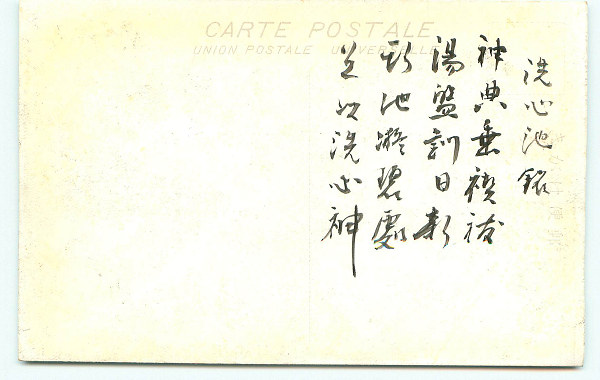 CARTE POSTALE
UNION POSTALE UNIVERSELLE
洗心池銘
神典垂禊祓
湯盤訓日新
池凝碧處
足以洗心神